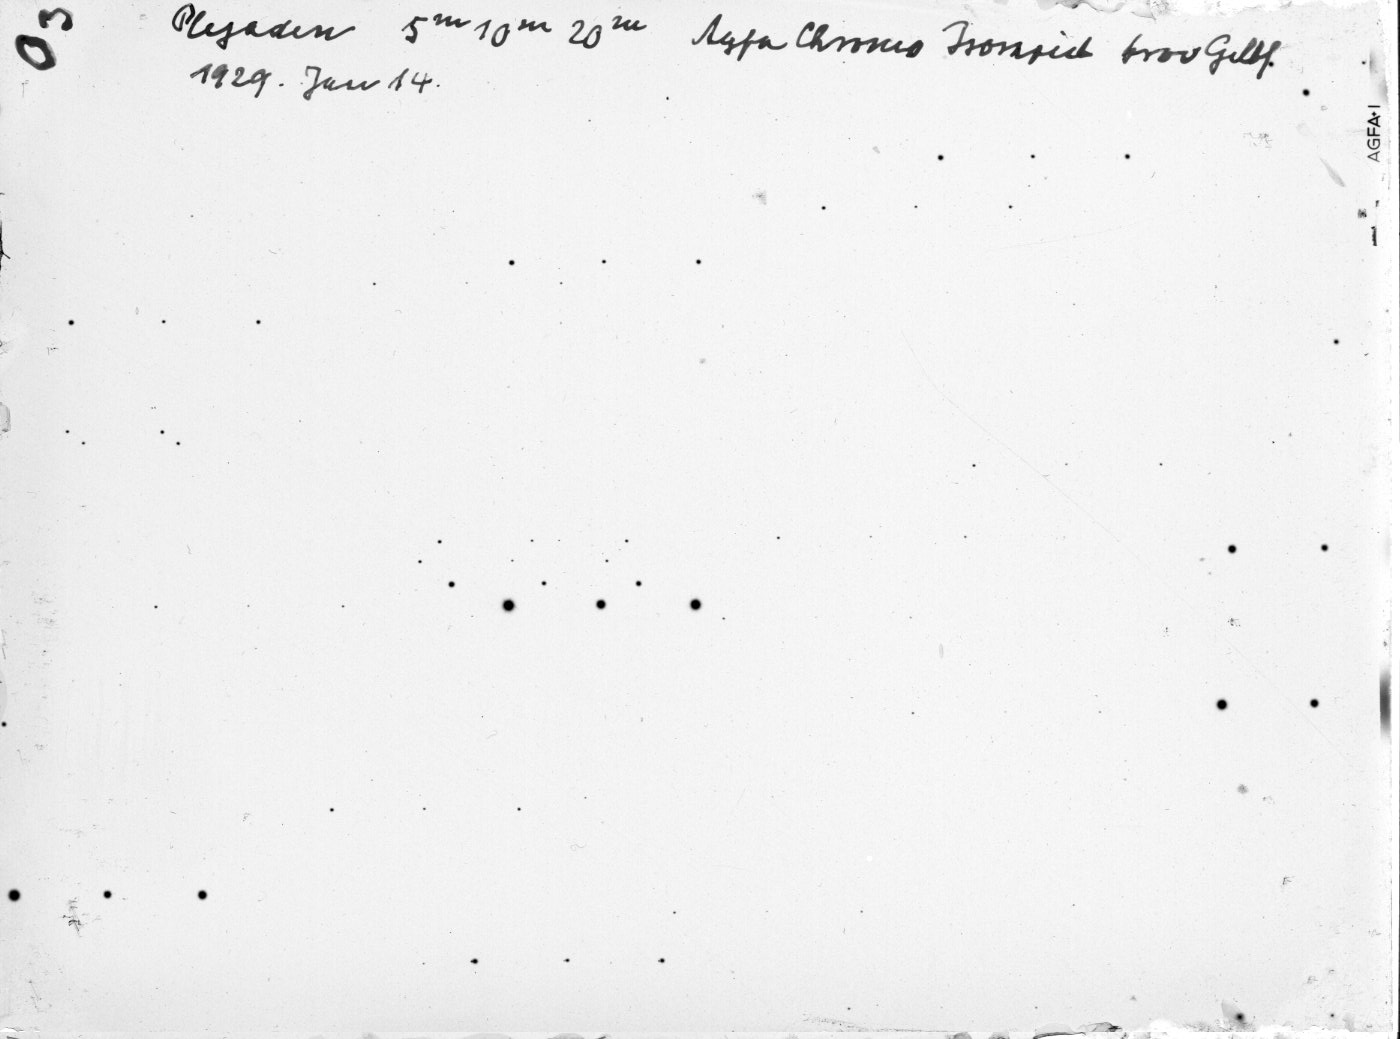 Plejaden 5m 10m 20m Agfa Chromo Isorapid
1929. Jan 14.
03
AGFA·I